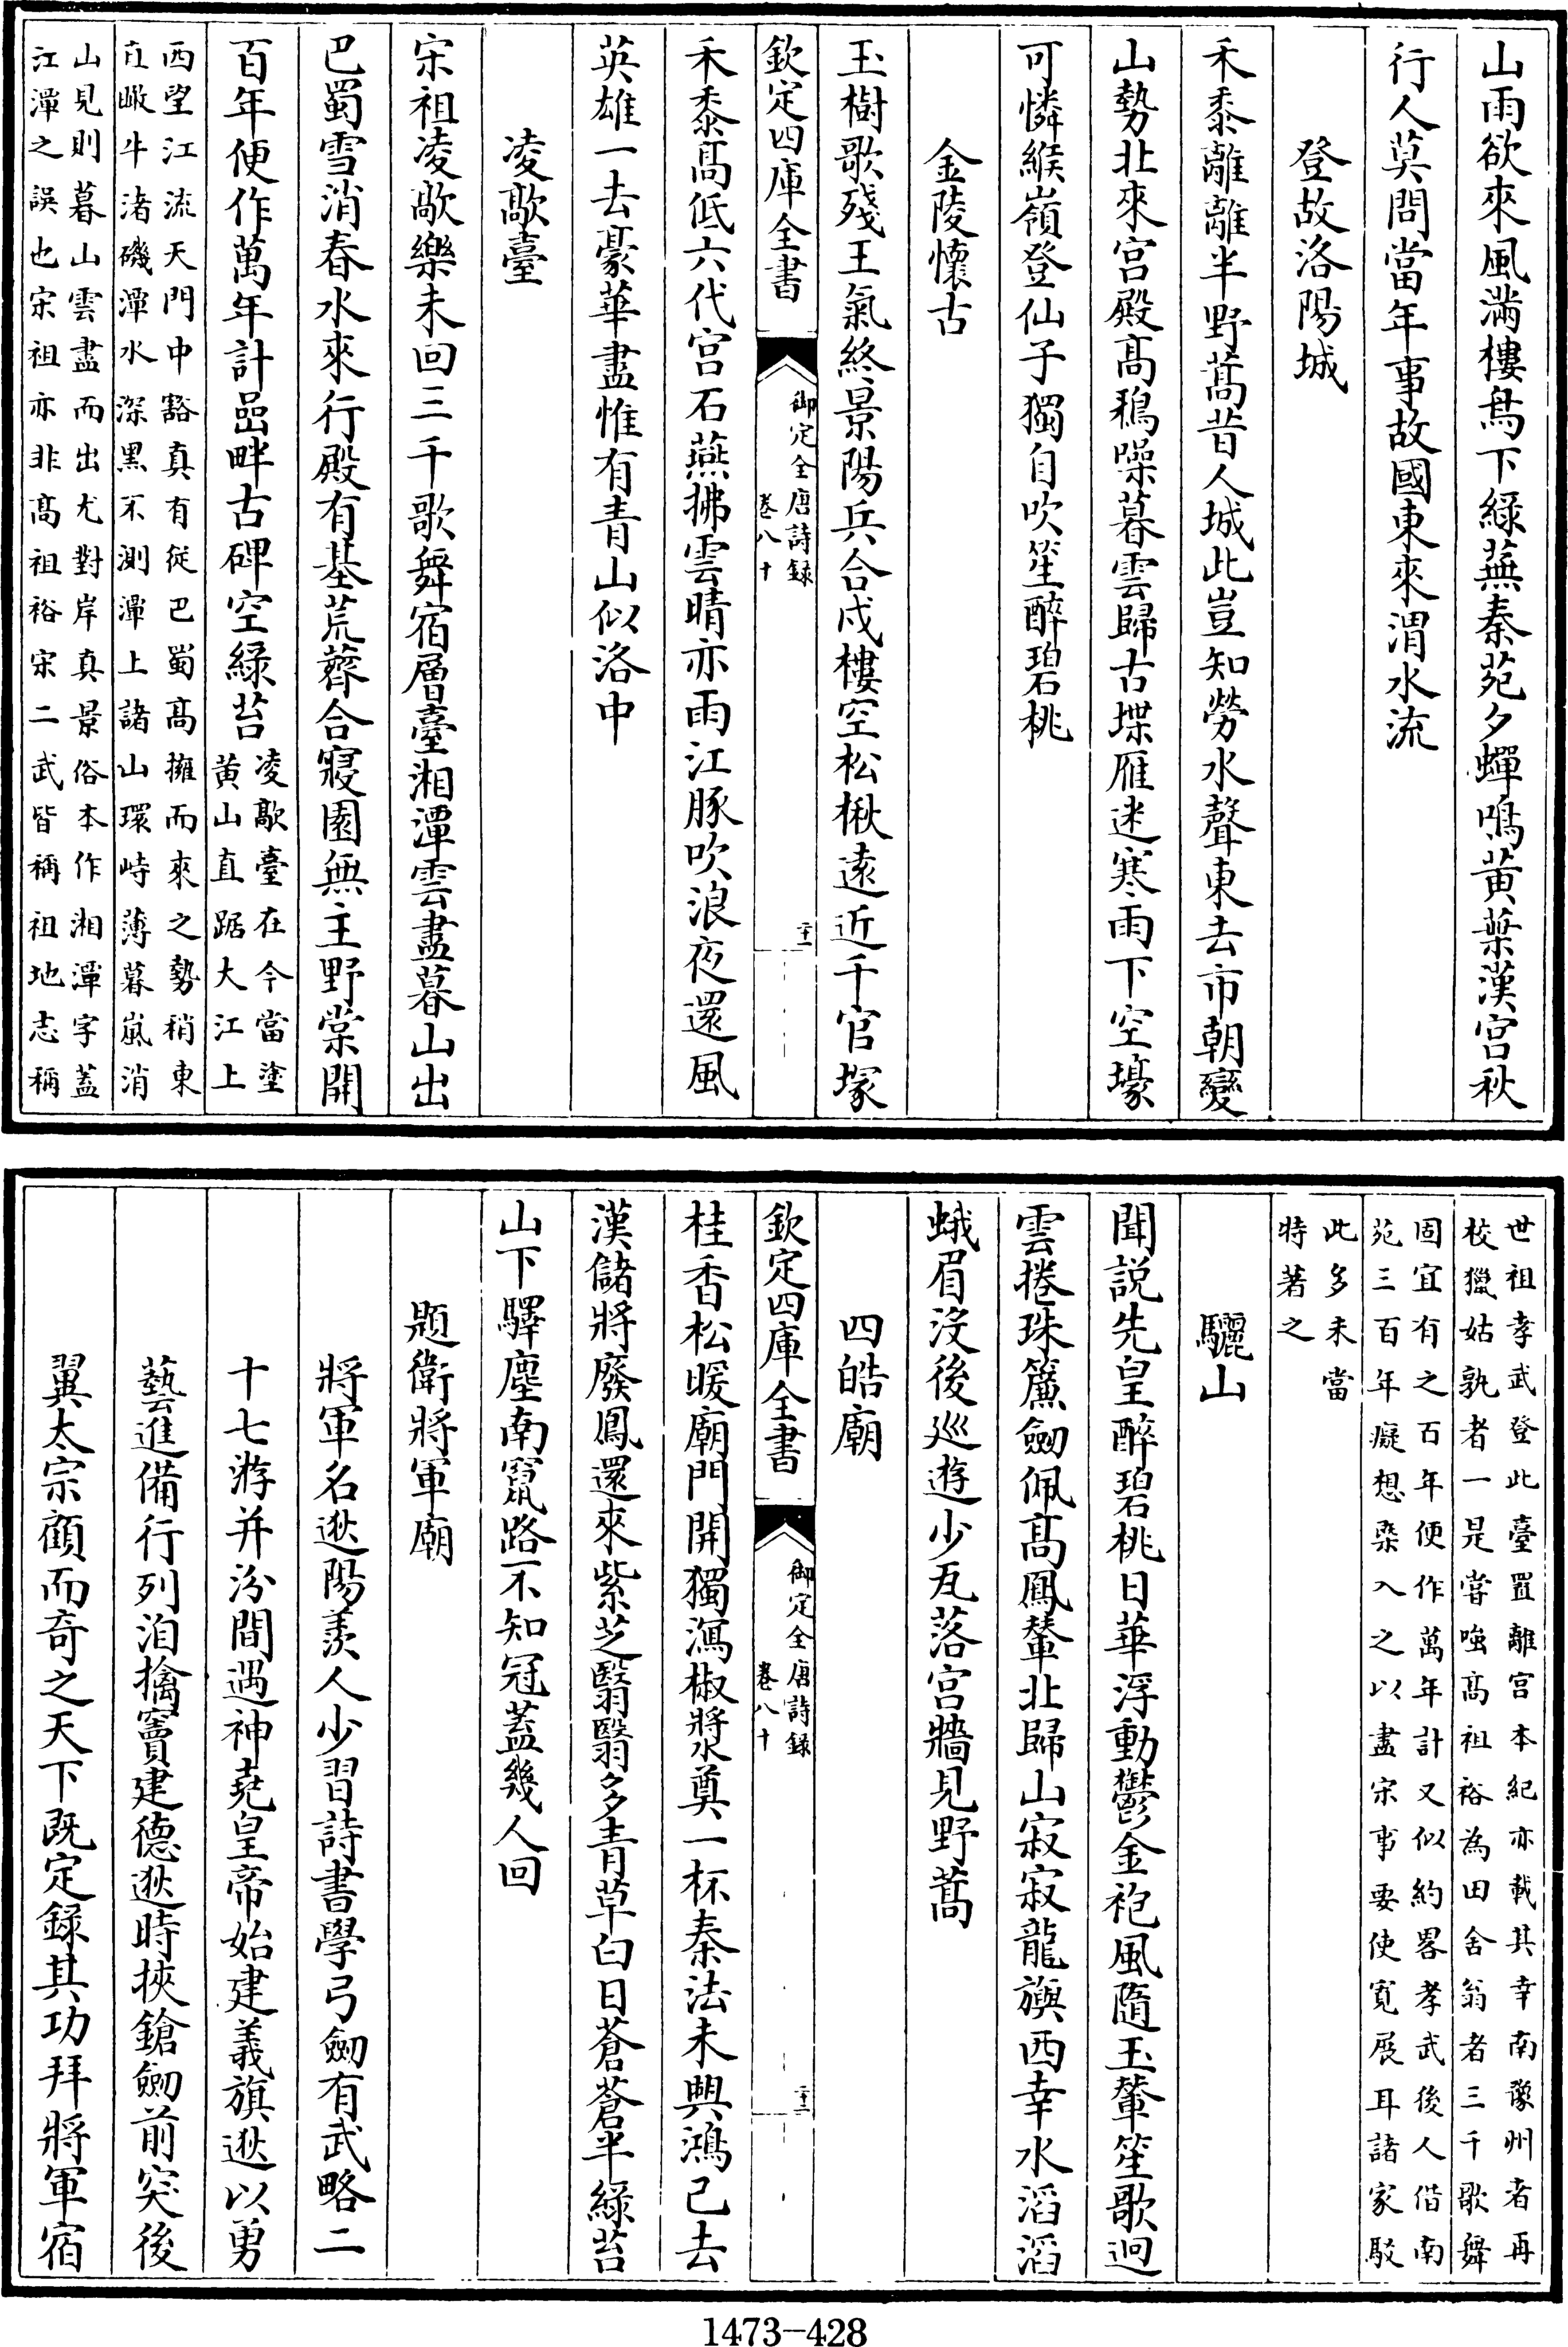 山雨欲來風滿樓鳥下緑蕪秦苑夕蟬鳴黄葉漢宫秋
行人莫問當年事故國東來渭水流
登故洛陽城
禾黍離離半野蒿昔人城此豈知勞水聲東去市朝變
山勢北來宫殿髙鵶噪暮雲歸古堞雁迷寒雨下空壕
可憐緱嶺登仙子獨自吹笙醉碧桃
金陵懷古
玉樹歌殘王氣終景陽兵合戍樓空松楸遠近千官塚
欽定四庫全書
御定全唐詩録
卷八十
二十一
禾黍髙低六代宫石燕拂雲晴亦雨江豚吹浪夜還風
英雄一去豪華盡惟有青山似洛中
凌歊臺
宋祖凌歊樂未回三千歌舞宿層臺湘潭雲盡暮山出
巴蜀雪消春水來行殿有基荒薺合寢園無主野棠開
百年便作萬年計嵒畔古碑空緑苔
凌歊臺在今當塗
黄山直踞大江上
西望江流天門中豁真有從巴蜀髙擁而來之勢稍東
直瞰牛渚磯潭水深黒不測潭上諸山環峙薄暮嵐消
山見則暮山雲盡而出尤對岸真景俗本作湘潭字蓋
江潭之誤也宋祖亦非髙祖裕宋二武皆稱祖地志稱
世祖孝武登此臺置離宫本紀亦載其幸南豫州者再
校獵姑孰者一是嘗嗤髙祖裕為田舍翁者三千歌舞
固宜有之百年便作萬年計又似約畧孝武後人偕南
苑三百年癡想槩入之以盡宋事要使寛展耳諸家駁
此多未當
特著之
驪山
聞説先皇醉碧桃日華浮動鬱金袍風隨玉輦笙歌迥
雲捲珠簾劒佩髙鳳輦北歸山寂寂龍旟西幸水滔滔
蛾眉沒後巡遊少瓦落宫牆見野蒿
四皓廟
桂香松暖廟門開獨瀉椒漿奠一杯秦法未興鴻已去
欽定四庫全書
御定全唐詩録
卷八十
二十二
漢儲將廢鳳還來紫芝翳翳多青草白日蒼蒼半緑苔
山下驛塵南竄路不知冠蓋幾人回
題衛將軍廟
將軍名逖陽羨人少習詩書學弓劒有武略二
十七游并汾間遇神堯皇帝始建義旗逖以勇
藝進備行列洎擒竇建德逖時挾鎗劒前突後
翼太宗顧而奇之天下既定録其功拜將軍宿
1473-428